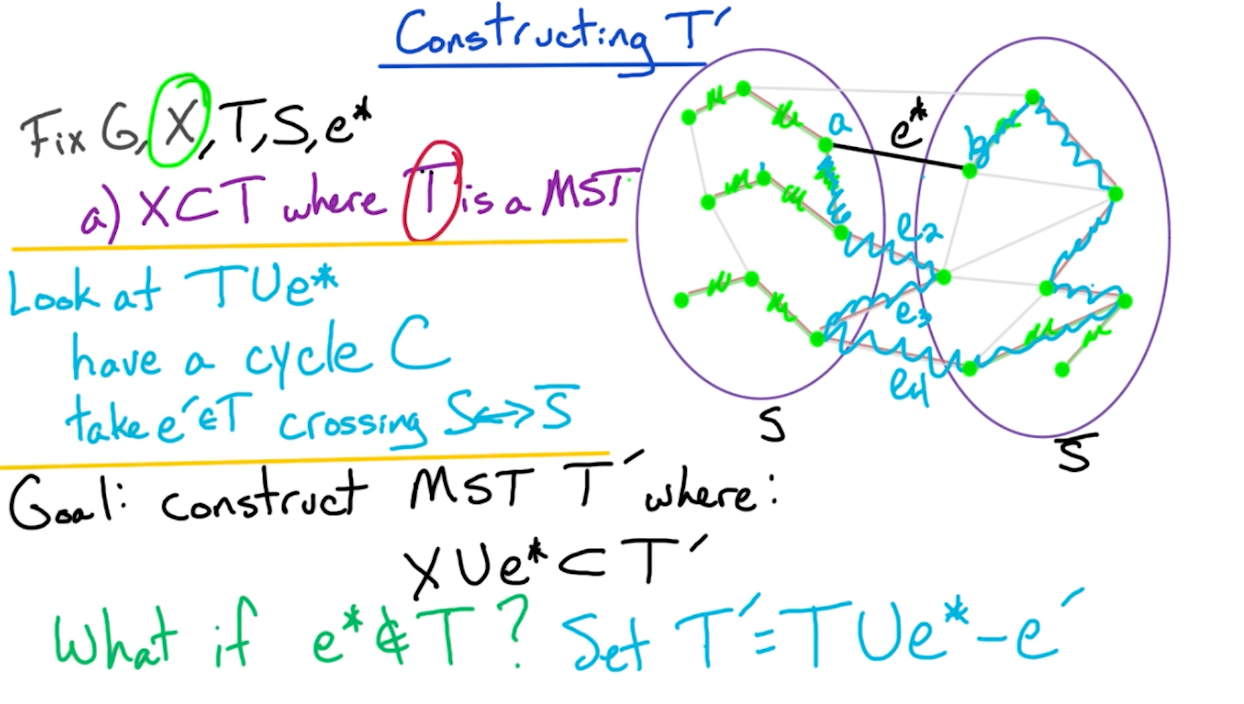 Constructing T′
Fix G, X, T, S, e*
a) X⊂T where T is a MST
Look at T∪e*
have a cycle C
take e′∈T crossing S↔S̅
Goal: construct MST T′ where:
X∪e*⊂T′
What if e*∉T? Set T′=T∪e*−e′
a
e*
b
e₂
e₃
e₄
S
S̅